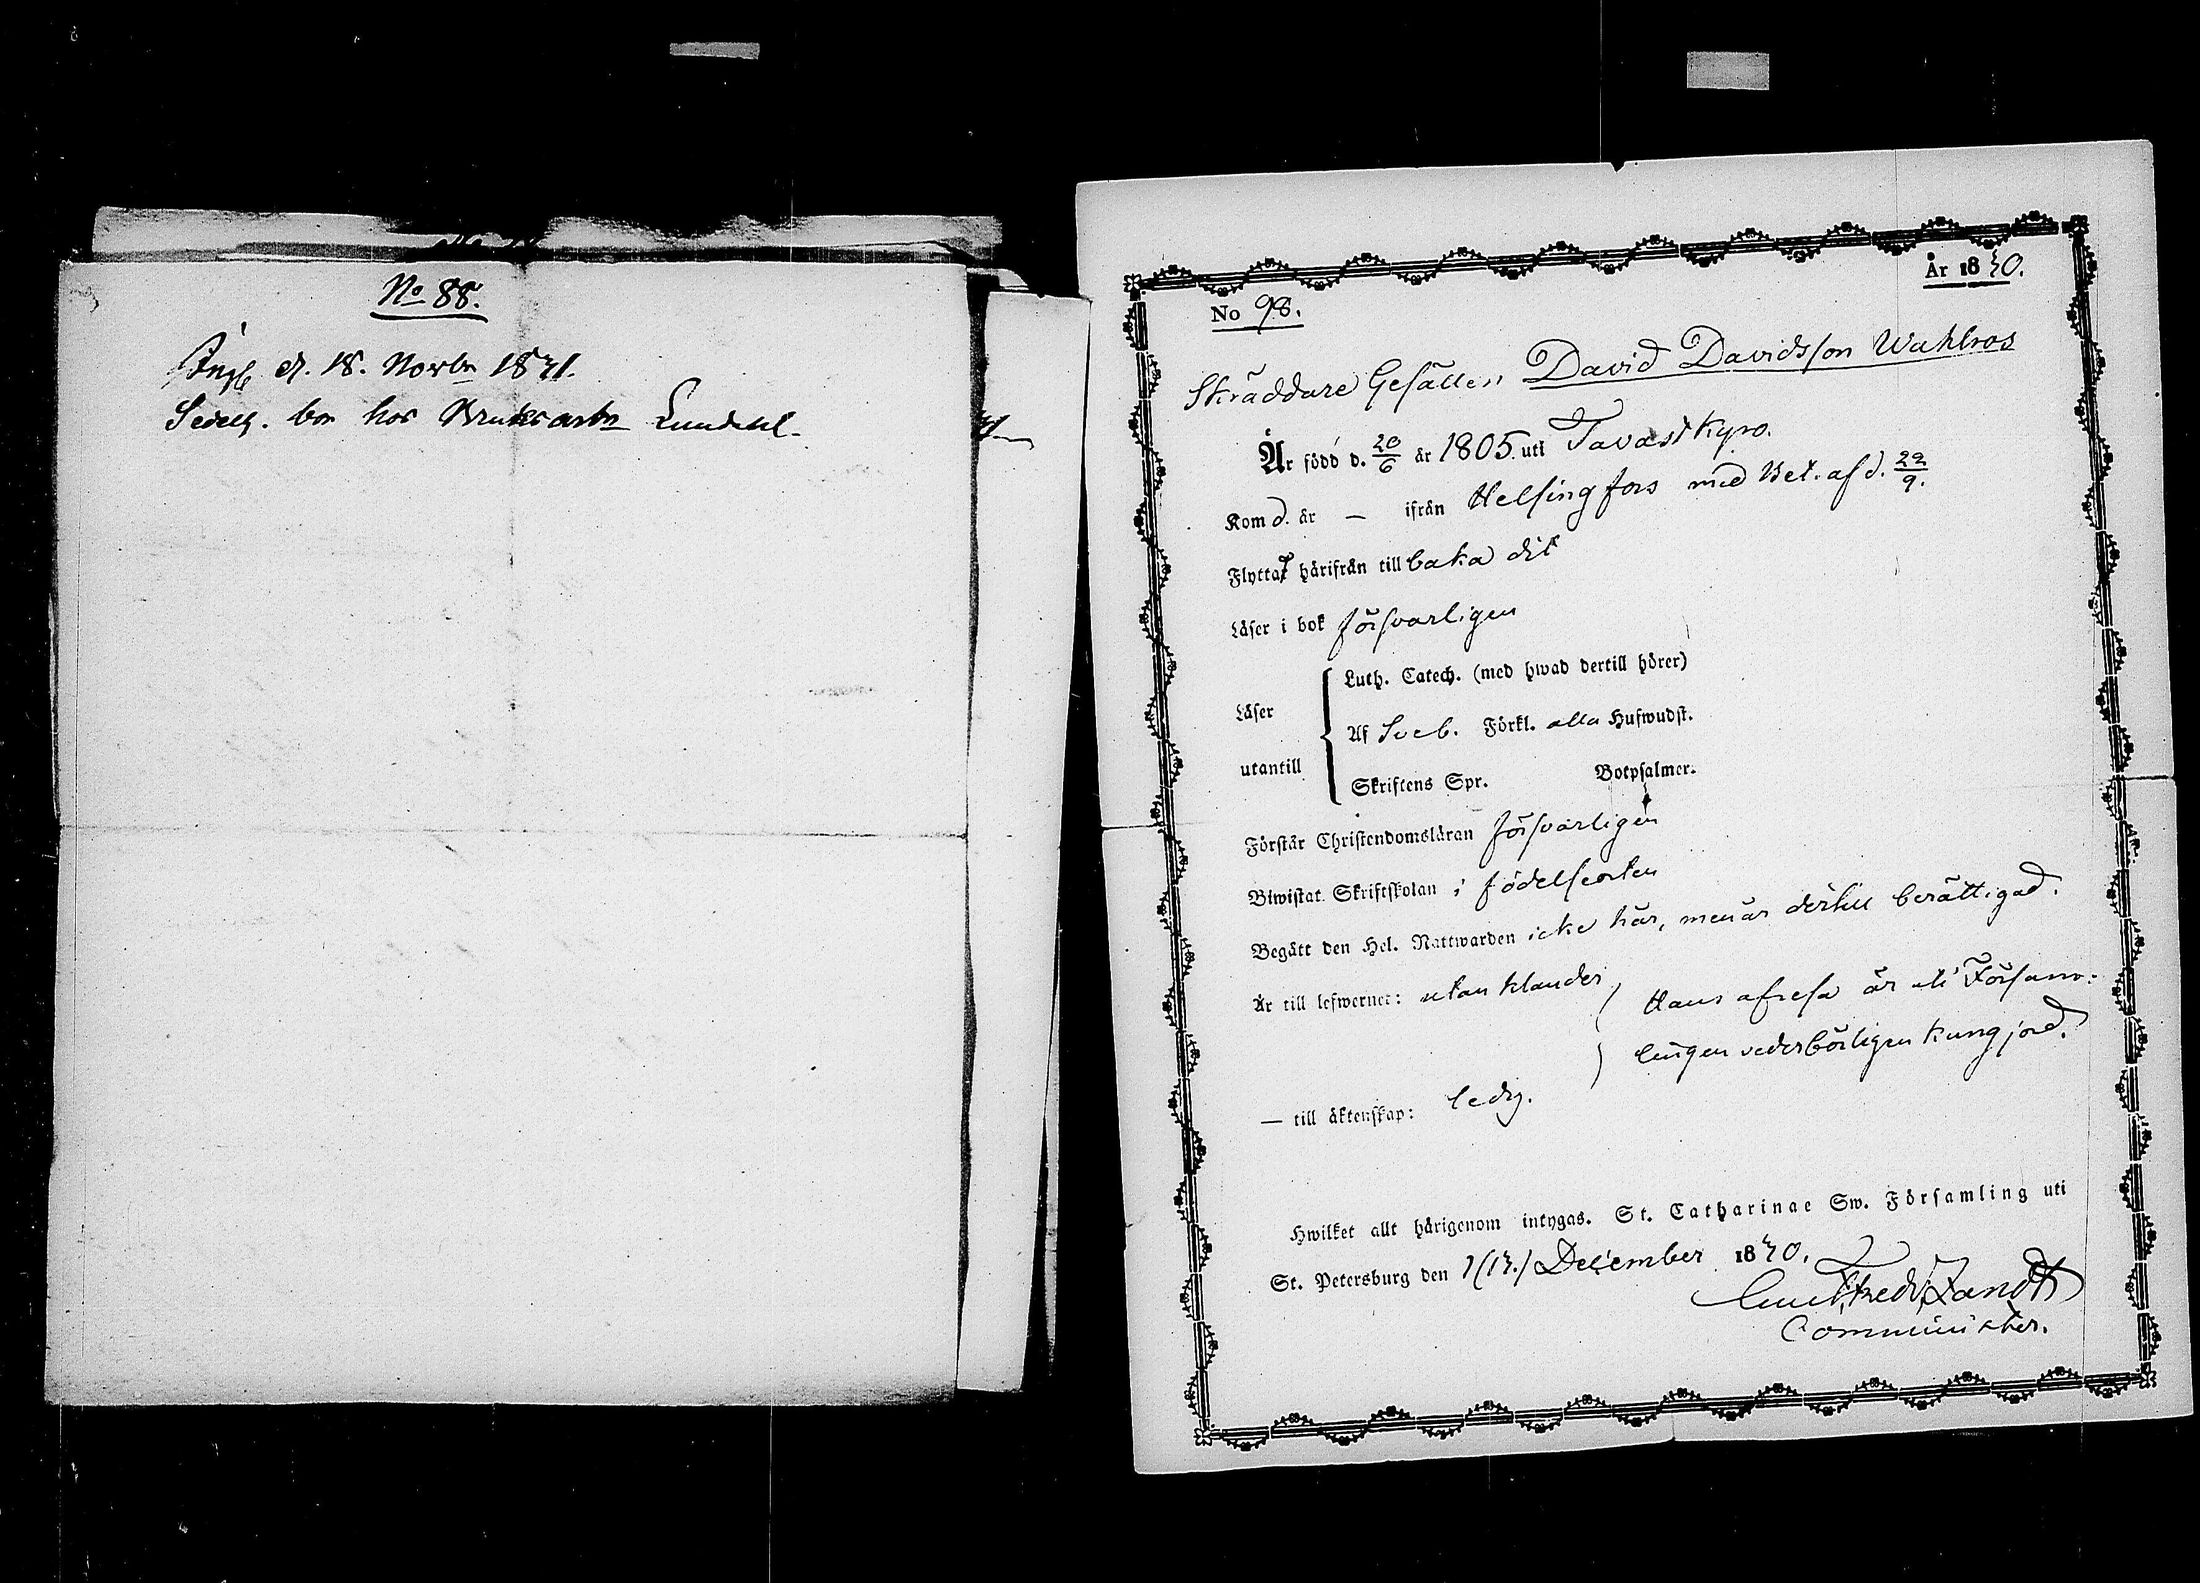 No 88.
d. 18. Novbr 1841.
bor hos Bruksarb
No 98.
År 1840.
Skräddare Gesällen David Davidsson Wahlros
Är född d. 20/6 år 1805. uti Tavastkyro.
Kom d. år — ifrån Helsingfors med Bet. af d. 22/9.
Flyttat härifrån tillbaka dit
Läser i bok försvarligen
Läser utantill
Luth. Catech. (med hwad dertill hörer)
Af Sveb. Förkl. alla Hufwudst.
Skriftens Spr. Botpsalmer.
Förstår Christendomsläran försvarligen
Biwistat Skriftskolan i födelseorten
Begått den Hel. Nattwarden icke här, men är dertill berättigad.
Är till lefwernet: utan klander,
Hans afresa är uti Församlingen vederbörligen kungjord.
— till äktenskap: ledig.
Hwilket allt härigenom intygas. St. Catharinae Sw. Församling uti
St. Petersburg den 1(13.) December 1840.
Comminister.